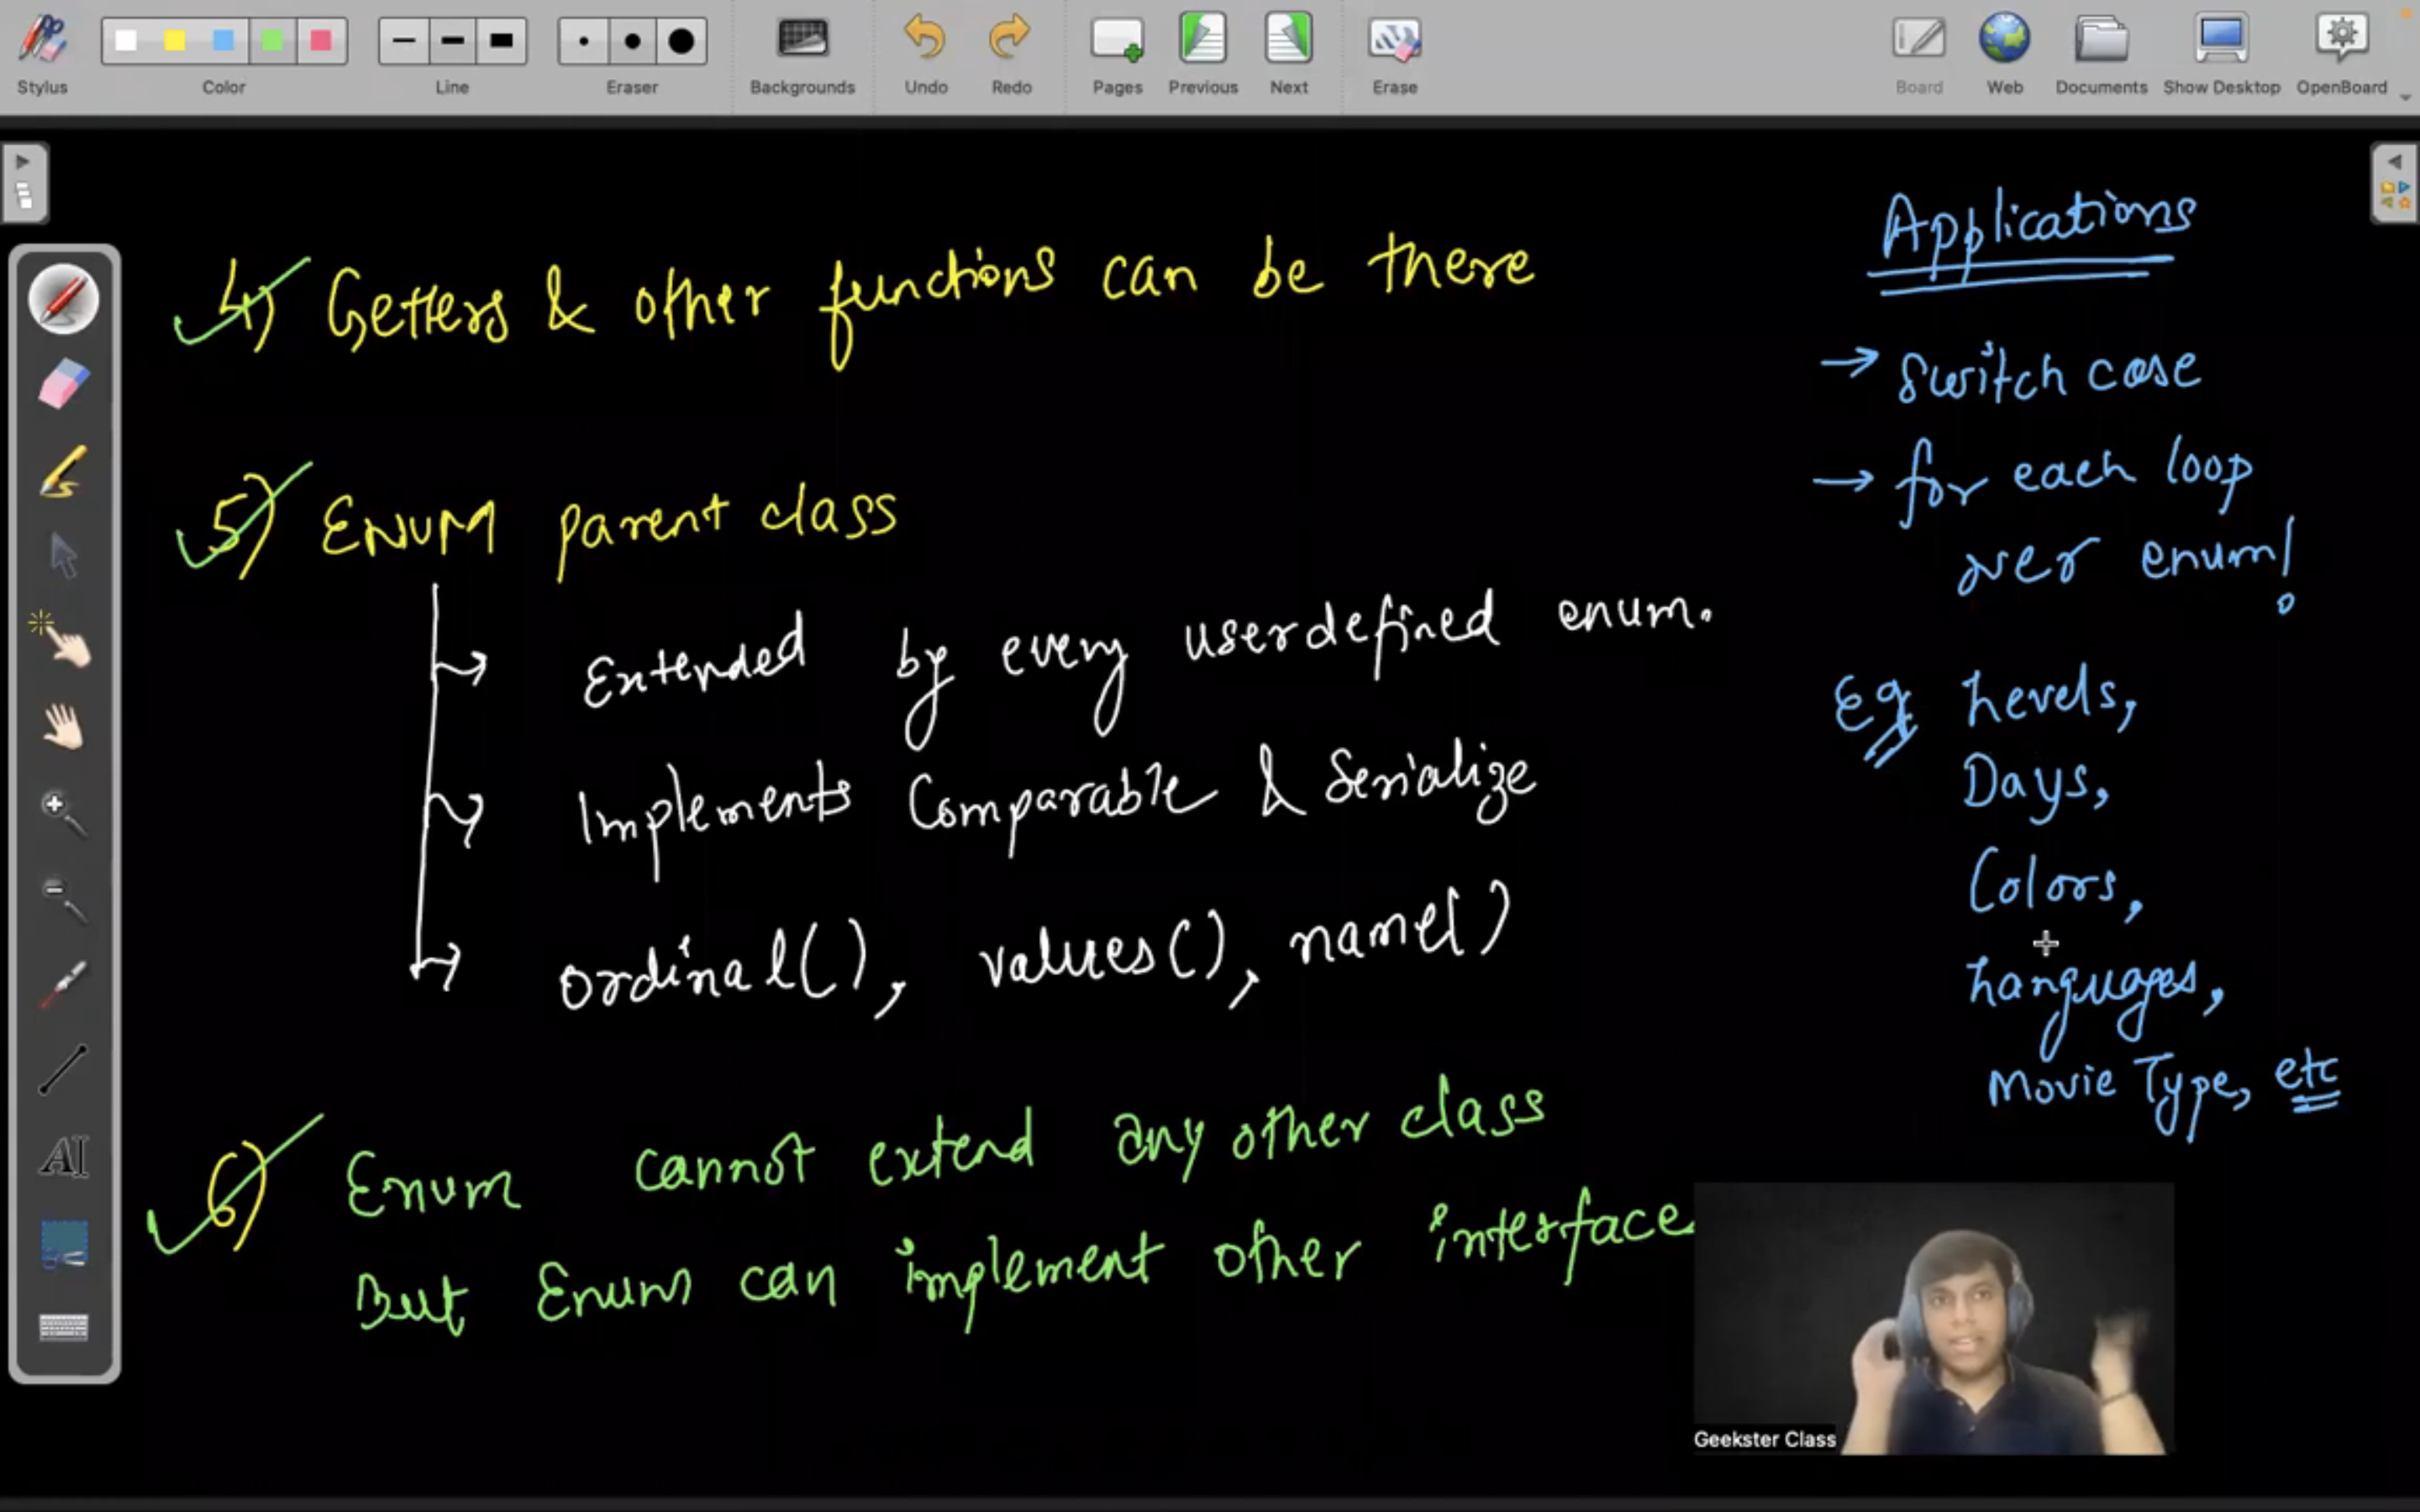 Stylus
Color
Line
Eraser
Backgrounds
Undo
Redo
Pages
Previous
Next
Erase
Board
Web
Documents
Show Desktop
OpenBoard
4) Getters & other functions can be there
5) ENUM parent class
Extended by every userdefined enum.
Implements Comparable & Serialize
ordinal(), values(), name()
6) Enum cannot extend any other class
But Enum can implement other interface
Applications
→ Switch case
→ for each loop
over enum!
Eg Levels,
Days,
Colors,
Languages,
Movie Type, etc
AI
Geekster Class